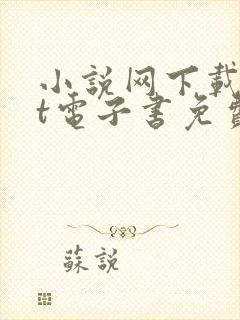 小說网下载
t電子書免費
蘇說